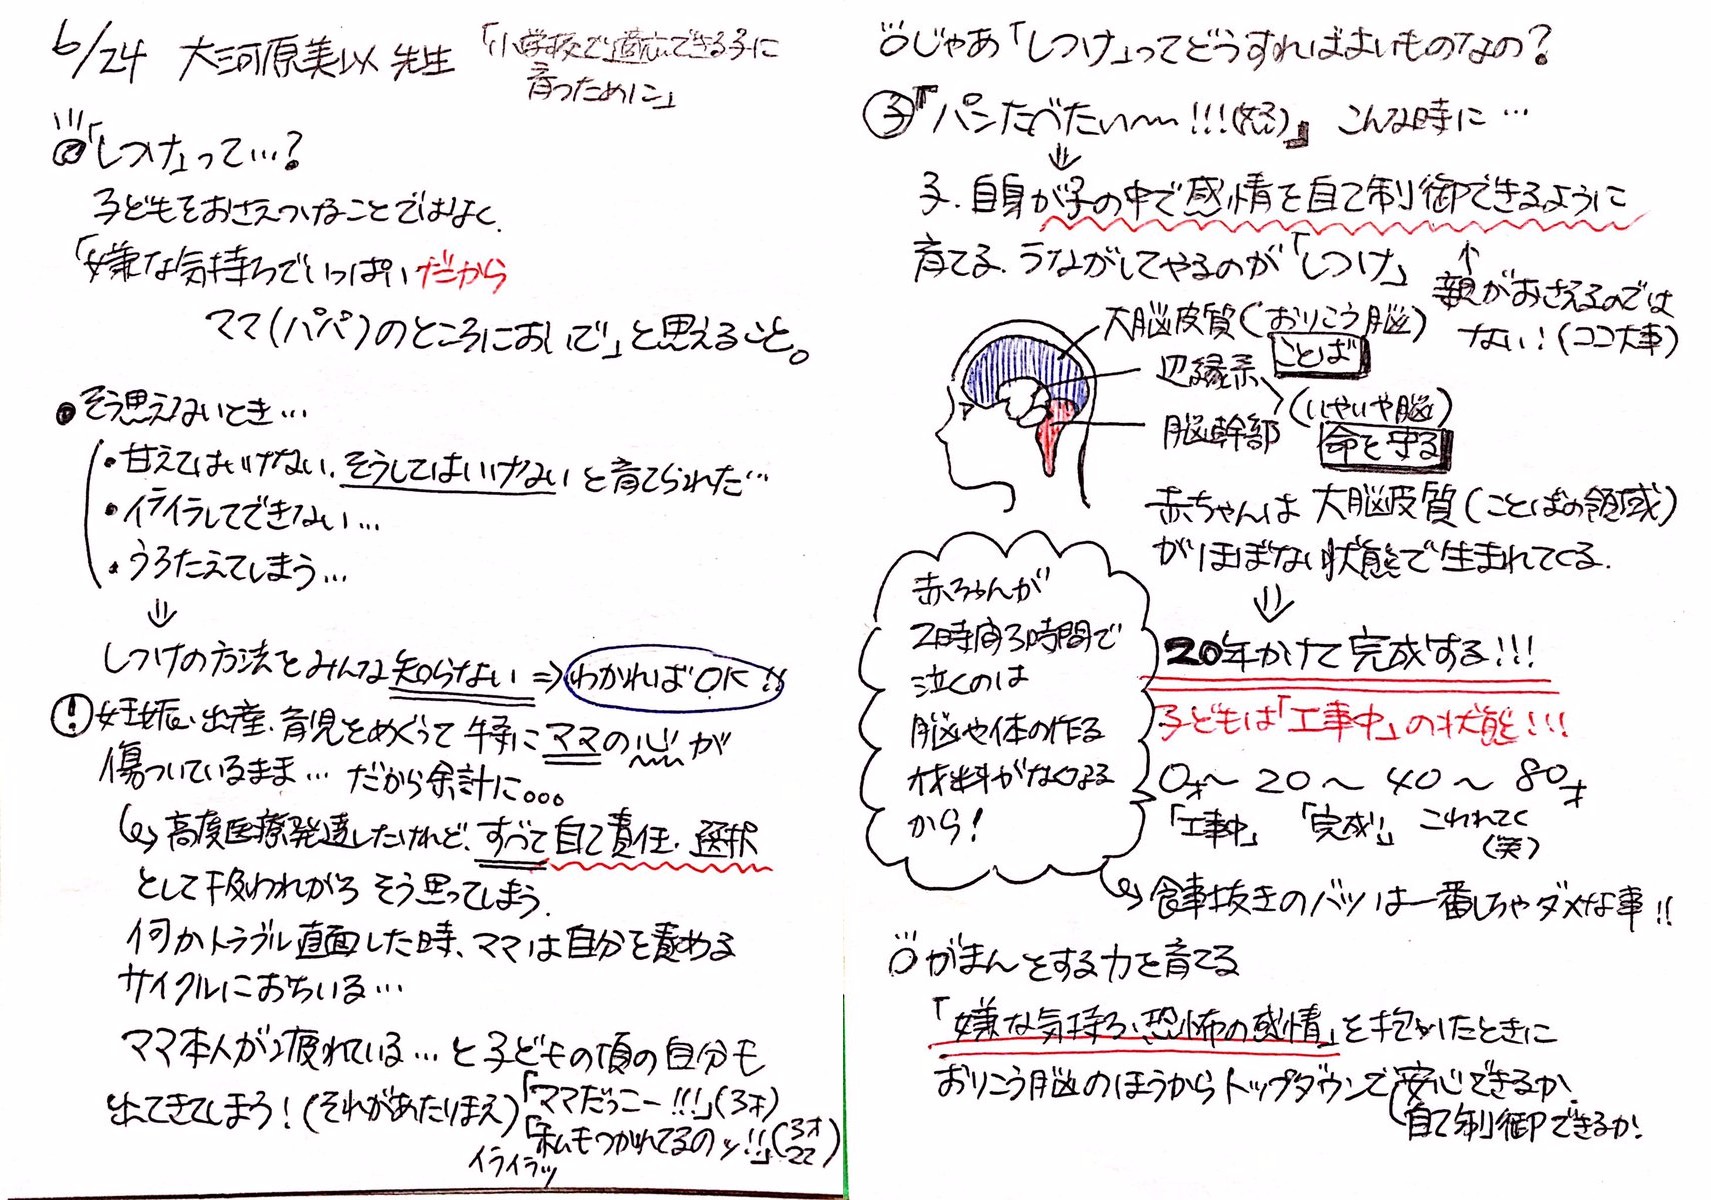 6/24 大河原美以先生 「小学校で適応できる子に
育つために」
「しつけ」って…?
子どもをおさえつけることではなく、
「嫌な気持ちでいっぱいだから
ママ(パパ)のところにおいで」と思えること。
そう思えないとき…
・甘えてはいけない、そうしてはいけないと育てられた…
・イライラしてできない…
・うろたえてしまう…
⇓
しつけの方法をみんな知らない ⇒ わかればOK!!
! 妊娠、出産、育児をめぐって特にママの心が
傷ついているまま… だから余計に。。。
高度医療発達したけれど、すべて自己責任・選択
として扱われがち そう思ってしまう。
何かトラブル直面した時、ママは自分を責める
サイクルにおちいる…
ママ本人が疲れている…と子どもの頃の自分も
出てきてしまう!(それがあたりまえ)
「ママだっこー!!!」(3才)
「私もつかれてるのッ!!」(3才
イライラッ
じゃあ「しつけ」ってどうすればよいものなの?
子『パンたべたい〜!!!(怒)』 こんな時に…
⇓
子、自身が子の中で感情を自己制御できるように
育てる、うながしてやるのが「しつけ」
↑
親がおさえるのでは
ない!(ココ大事)
大脳皮質(おりこう脳)
ことば
辺縁系
(いやいや脳)
脳幹部
命を守る
赤ちゃんは大脳皮質(ことばの領域)
がほぼない状態で生まれてくる。
⇓
20年かけて完成する!!!
子どもは「工事中」の状態!!!
0才〜 20 〜 40 〜 80才
「工事中」 「完成!」 こわれてく
(笑)
赤ちゃんが
2時間3時間で
泣くのは
脳や体の作る
材料がなくなる
から!
食事抜きのバツは一番しちゃダメな事!!
がまんをする力を育てる
「嫌な気持ち、恐怖の感情」を抱いたときに
おりこう脳のほうからトップダウンで安心できるか、
(自己制御できるか。